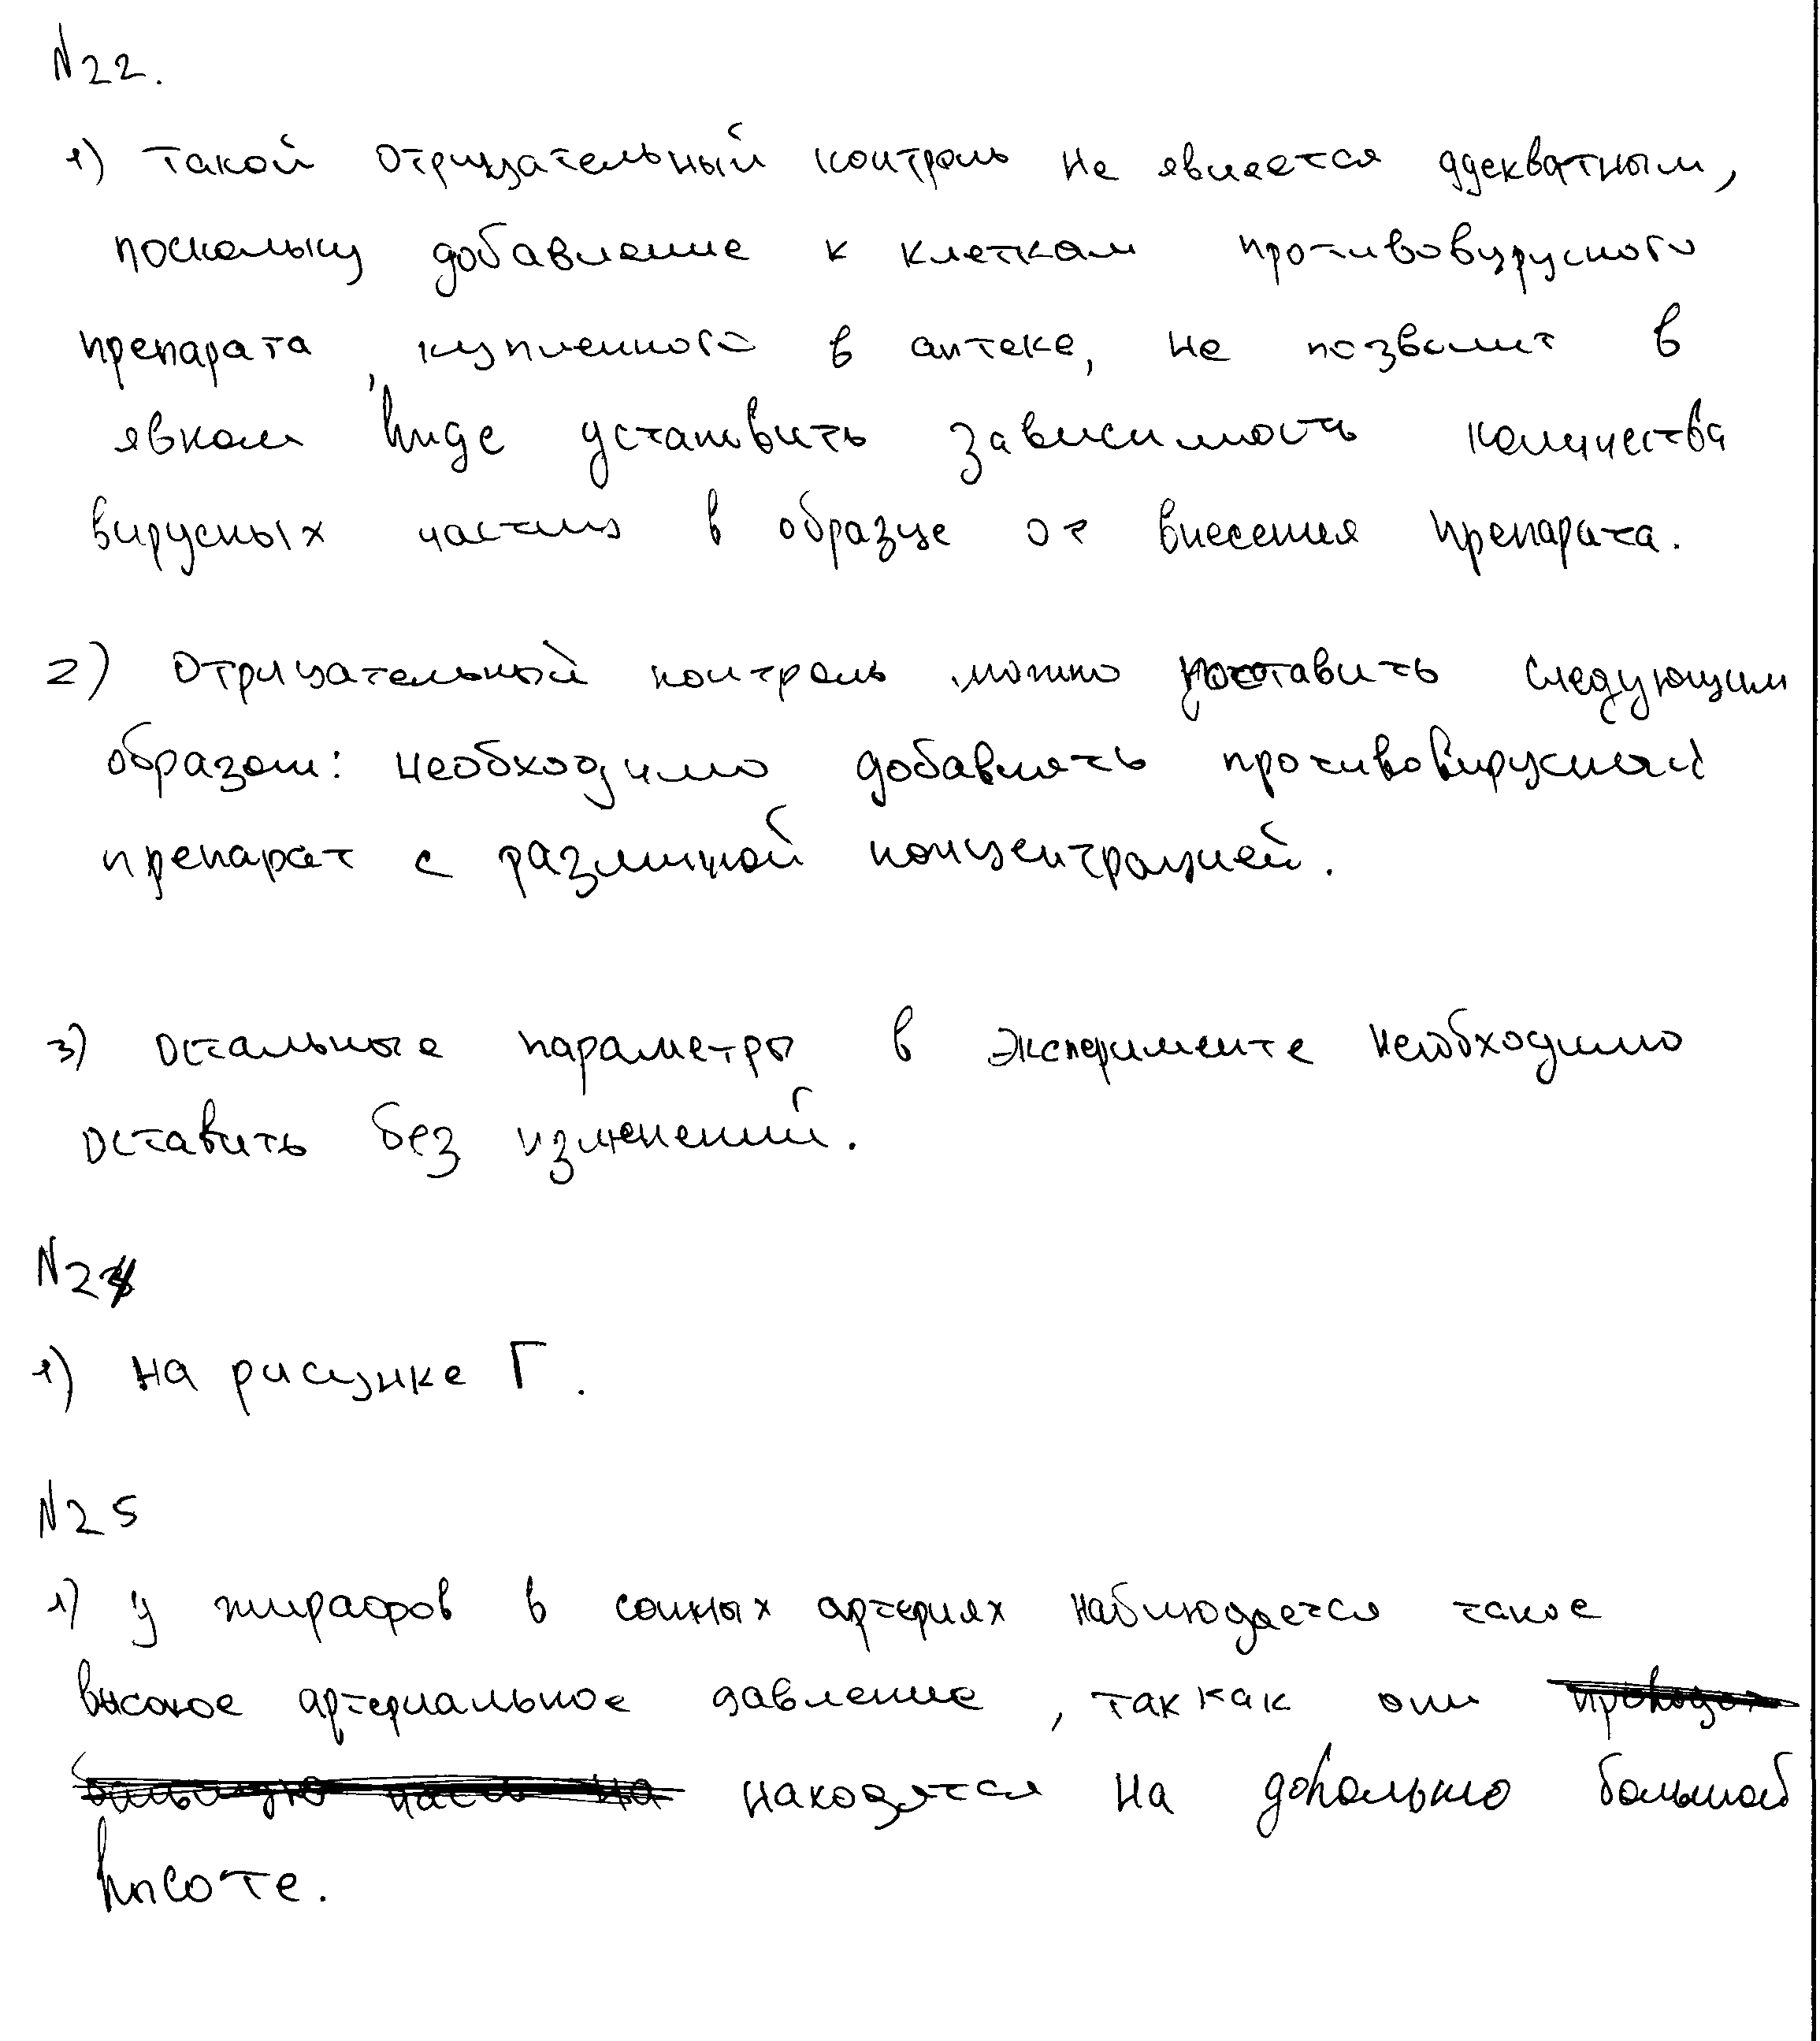 N22.
1) такой отрицательный контроль не является адекватным,
поскольку добавление к клеткам противовирусного
препарата, купленного в аптеке, не позволит в
явном виде установить зависимость количества
вирусных частиц в образце от внесения препарата.
2) Отрицательный контроль можно поставить следующим
образом: необходимо добавлять противовирусный
препарат с различной концентрацией.
3) остальные параметры в эксперименте необходимо
оставить без изменений.
N24
1) на рисунке Г.
N25
1) у жирафов в сонных артериях наблюдается такое
высокое артериальное давление, так как они
находятся на довольно большой
высоте.